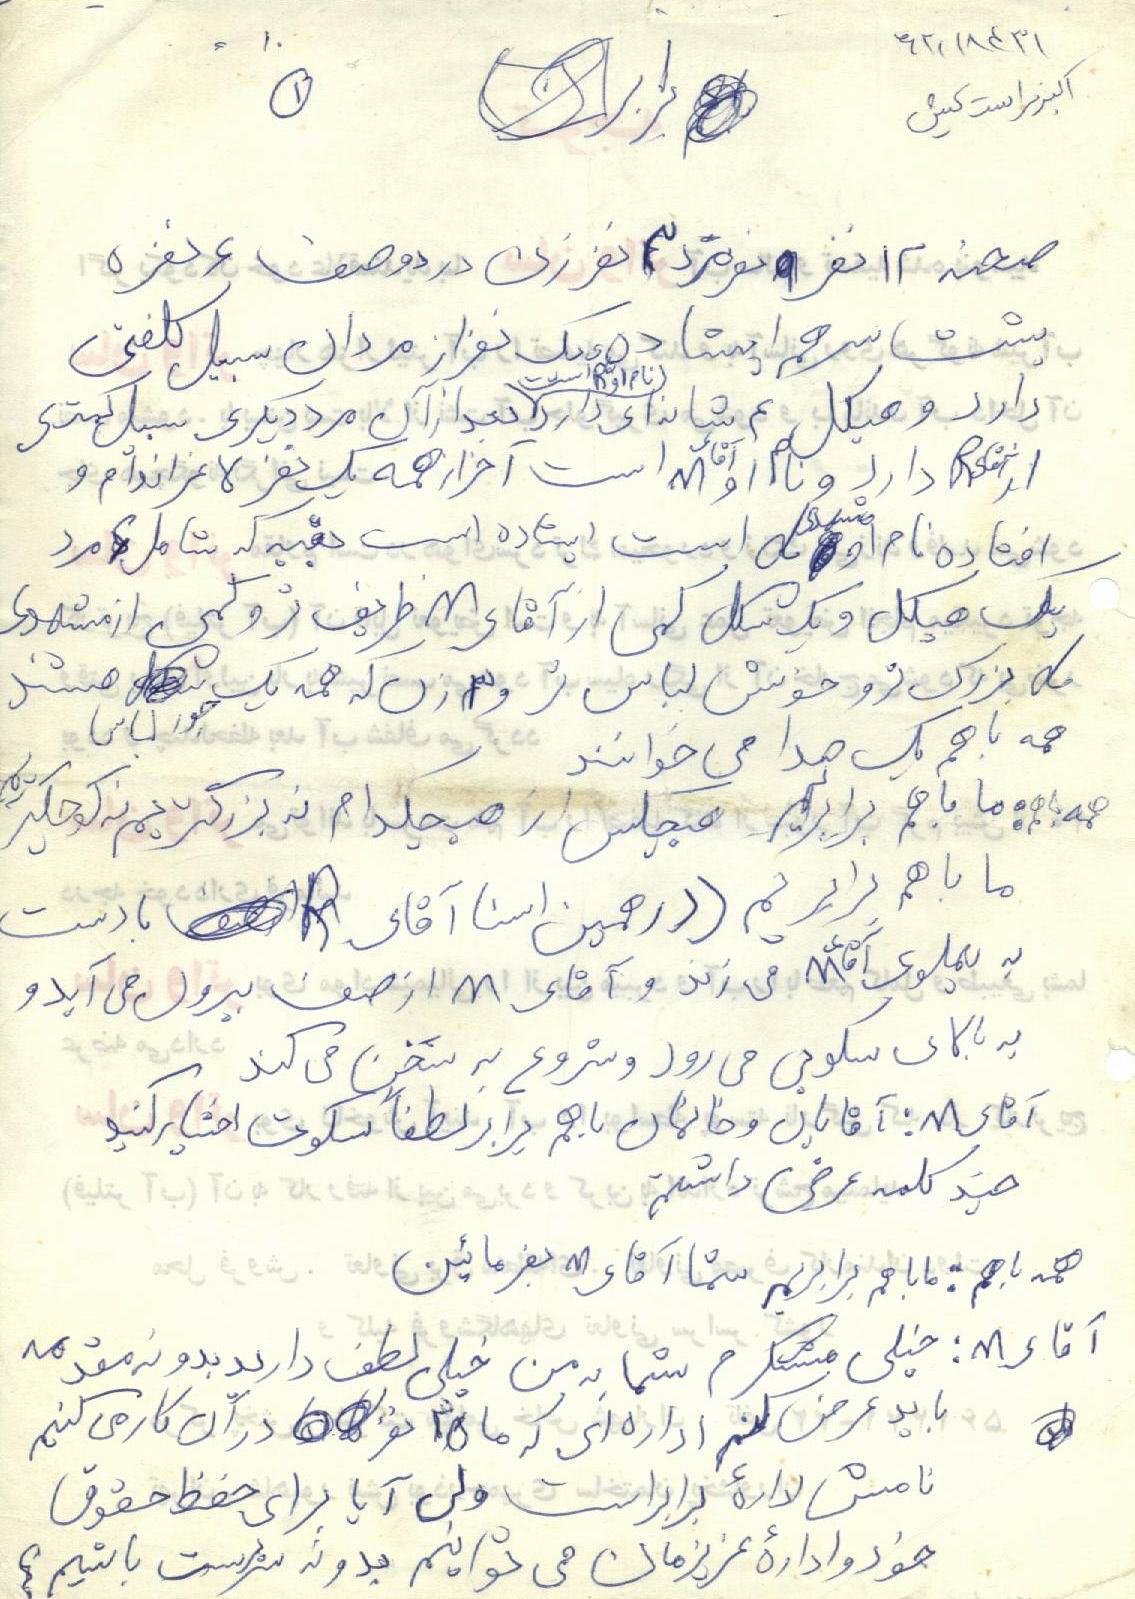 ۱۰
۱
برابران
صحنه ۱۲ نفر ۹ نفر مرد ۳ نفر زن در دو صف ۶ نفره
پشت سر هم ایستاده یک نفر از مردان سبیل کلفتی
(نام او R است)
دارد و هیکل شانه‌ای دارد بعد از آن مرد دیگری سبیل کمتری
از آقای R دارد و نام او آقای M است آخر از همه یک نفر لاغر اندام و
افتاده نام او مشهدی است ایستاده است بقیه که شامل ۶ مرد
یک هیکل و یک شکل کمی از آقای M ظریف تر و کمی از مشهدی
بزرگ تر و خوش لباس تر و ۳ زن که همه یک جور لباس هستند
همه با هم یک صدا می خوانند
همه باهم: ما با هم برابریم هیچکس از هیچکدام نه بزرگتریم نه کوچکتریم
ما با هم برابریم (در همین اسنا آقای R با دست
به پهلوی آقای M می زند و آقای M از صف بیرون می آید و
به بالای سکویی می رود و شروع به سخن می کند
آقای M: آقایان و خانمان باهم برابر لطفاً سکوت اختیار کنید
چند کلمه عرضی داشتم
همه باهم: ما باهم برابریم شما آقای M بفرمائین
آقای M: خیلی متشکرم شما به من خیلی لطف دارید بدونه مقدمه
باید عرض کنم اداره ای که ما نفر در آن کار می کنیم
نامش ادارهٔ برابر است ولی آیا برای حفظ حقوق
خود و ادارهٔ عزیزمان می توانیم بدونه سرپرست باشیم؟